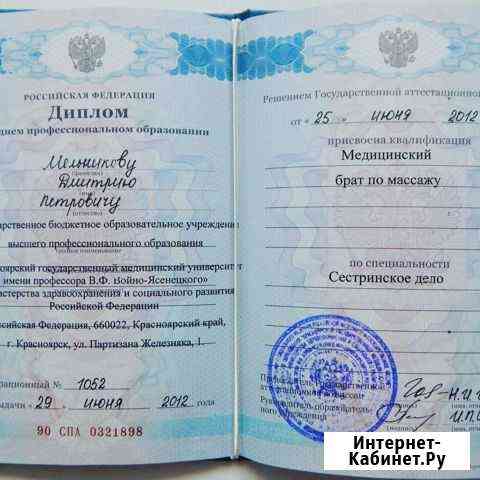 РОССИЙСКАЯ ФЕДЕРАЦИЯ
Диплом
профессиональном образовании
Мельникову
(фамилия)
Дмитрию
(имя)
Петровичу
(отчество)
бюджетное образовательное учреждение
высшего профессионального образования
государственный медицинский университет
имени профессора В.Ф. Войно-Ясенецкого»
здравоохранения и социального развития
Российской Федерации
Федерация, 660022, Красноярский край,
г. Красноярск, ул. Партизана Железняка, 1.
№ 1052
29 июня 2012 года
90 СПА 0321898
Решением Государственной аттестационной
от « 25 » июня 2012
присвоена квалификация
Медицинский
брат по массажу
по специальности
Сестринское дело
Председатель Государственной
аттестационной комиссии
Руководитель
учреждения
(подпись)
Интернет-
Кабинет.Ру